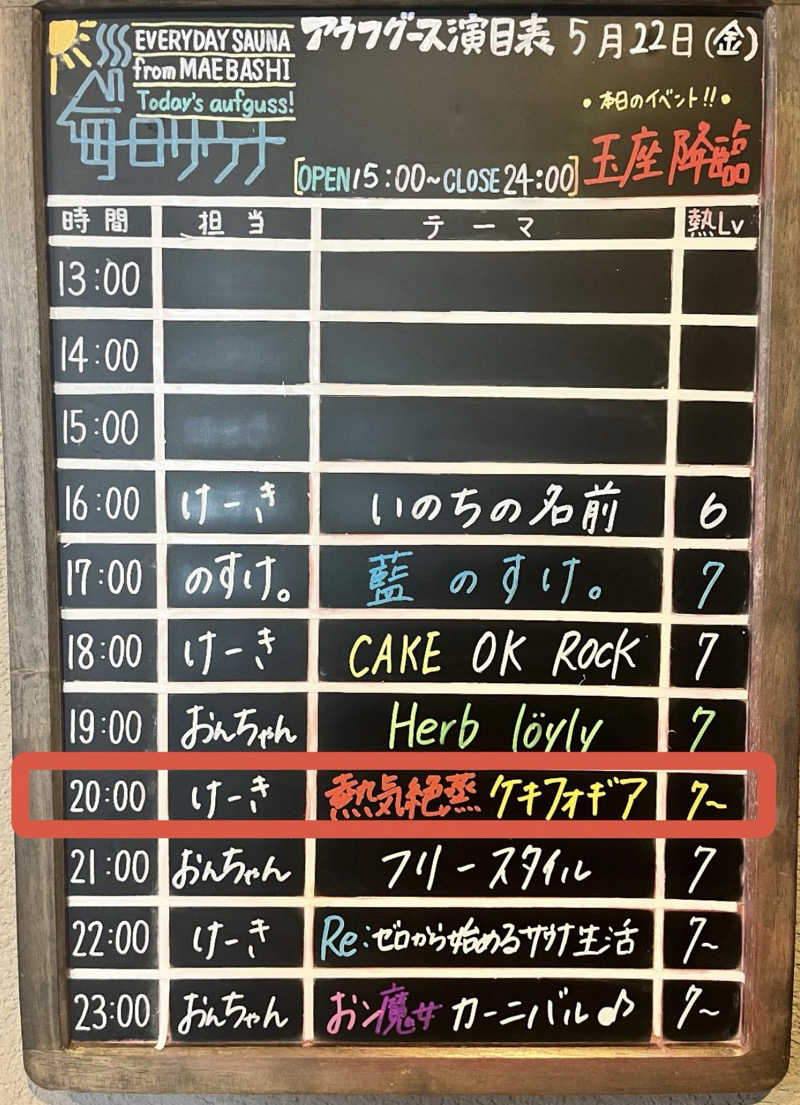 EVERYDAY SAUNA
from MAEBASHI
Today's aufguss!
毎日サウナ
アウフグース演目表 5月22日(金)
•本日のイベント!!•
玉座降臨
[OPEN15:00~CLOSE24:00]
時間 担当 テーマ 熱Lv
13:00
14:00
15:00
16:00 けーき いのちの名前 6
17:00 のすけ。 藍のすけ。 7
18:00 けーき CAKE OK ROCK 7
19:00 おんちゃん Herb löyly 7
20:00 けーき 熱気絶蒸 ケキフォギア 7~
21:00 おんちゃん フリースタイル 7
22:00 けーき Re:ゼロから始めるサウナ生活 7~
23:00 おんちゃん おン魔女カーニバル♪ 7~